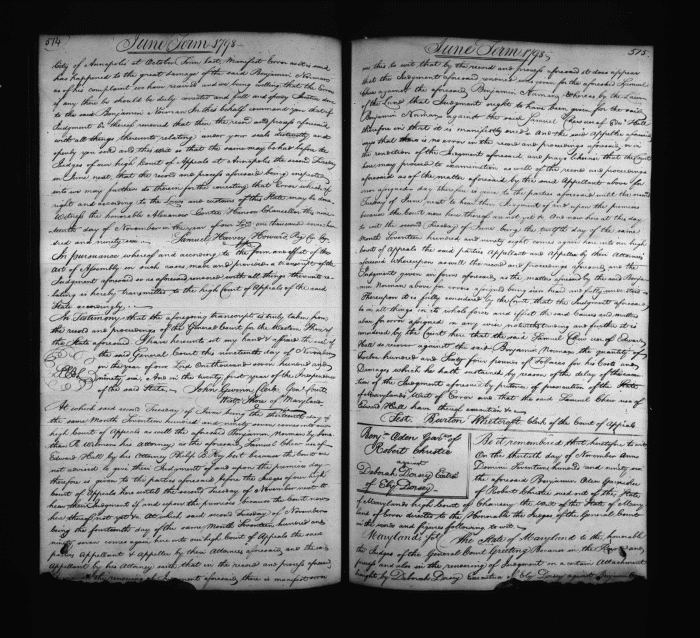 514
June Term 1798
City of Annapolis at October Term last Manifest Error as it is said
has happened to the great damage of the said Benjamin Nannan
as of his complaint we have received and we being willing that the Error
if any there be should be duly corrected and full and speedy Justice done
to the said Benjamin Nannan In this behalf command you that if
Judgment be thereof rendered that then the record and process aforesaid
with all things thereunto relating under your seals distinctly and
openly you send and this writ so that the same may be had before the
Judges of our high Court of Appeals at Annapolis the second Tuesday
in June next, that the record and process aforesaid being inspected
we may further do therein for the correcting that Error which of
right and according to the Laws and customs of this State may be done
Witness the honorable Alexander Contee Hanson Chancellor the nine
teenth day of November in the year of our Lord one thousand seven hun
dred and ninety six
Samuel Harvey Howard Reg. Cur. Can.
In pursuance whereof and according to the form and effect of the
Act of Assembly in such cases made and provided a transcript of the
Judgment aforesaid as is aforesaid rendered with all things thereunto re
lating is hereby transmitted to the high Court of Appeals of the said
State accordingly
In Testimony that the aforegoing transcript is truly taken from
the record and proceedings of the General Court for the Western Shore of
the State aforesaid I have hereunto set my hand & affixed the seal of
the said General Court this nineteenth day of November
in the year of our Lord One thousand seven hundred and
ninety six And in the twenty first year of the Independence
of the said State. John Gwinn Clerk Genl. Court
Westn. Shore of Maryland
At which said second Tuesday of June being the thirteenth day of
the same Month Seventeen hundred and ninety seven comes into our
high Court of Appeals as well the aforesaid Benjamin Nannan by
his Attorney as the aforesaid Samuel Chew use of
Edward Hall by his Attorney Philip B. Key but because the Court is
not advised to give their Judgment of and upon the premises day
therefore is given to the parties aforesaid before the Judges of our high
Court of Appeals here until the second Tuesday of November next to
hear their Judgment if and upon the premises because the Court now
here thereof not yet &c At which said second Tuesday of November
being the fourteenth day of the same Month Seventeen hundred and
ninety seven comes again here into our high Court of Appeals the said
parties Appellant & Appellee by their Attornies aforesaid and the
Appellant by his Attorney saith that in the record and process aforesaid
the rendering of Judgment aforesaid there is manifest error
June Term 1798
515
in this to wit that by the record and process aforesaid it does appear
that the Judgment aforesaid was given for the aforesaid Samuel
Chew against the aforesaid Benjamin Nannan whereas by the Laws
of the Land that Judgment ought to have been given for the said
Benjamin Nannan against the said Samuel Chew use of Edwd. Hall
therefore in that it is manifestly erred And the said Appellee aforesaid
says that there is no error in the record and proceedings aforesaid or in
the rendition of the Judgment aforesaid and prays likewise that the Court
here may proceed to examination as well of the record and proceedings
aforesaid as of the matter aforesaid by the said Appellant above for
error assigned day therefore is given to the parties aforesaid until the second
Tuesday of June next to hear their Judgment of and upon the premises
because the Court now here thereof are not yet &c And now here at this day
to wit the second Tuesday of June being the twelfth day of the same
Month Seventeen hundred and ninety eight comes again here into our high
Court of Appeals the said parties Appellant and Appellee by their Attornies
aforesaid Whereupon as well the record and proceedings aforesaid and the
Judgment given in form aforesaid, as the matters assigned by the said Benja
min Nannan above for errors assigned being seen heard and fully understood
Thereupon it is fully considered by the Court that the Judgment aforesaid
be in all things in its whole force and effect the said Causes and matters
above for error assigned in any wise notwithstanding and further it is
considered by the Court here that the said Samuel Chew use of Edward
Hall do recover against the said Benjamin Nannan the quantity of
hundred and Sixty four pounds of Tobacco for his Costs and
Damages which he hath sustained by reason of the delay of the Execu
tion of the Judgment aforesaid by pretence of prosecution of the State
of Maryland's Writ of Error and that the said Samuel Chew use of
Edward Hall have thereof execution &c
Test. Burton Whetcroft Clerk of the Court of Appeals
Benjn. Aden
of
Robert Christie
against
Deborah Dorsey Exētrx
of Ely Dorsey
Be it remembered that heretofore to wit
On the thirtieth day of November Anno
Domini Seventeen hundred and ninety six
the aforesaid Benjamin Aden Garnishee
of Robert Christie sued out of the State
of Maryland's high Court of Chancery the writ of the State of Mary
land of Error directed to the Honorable the Judges of the General Court
in the words and figures following to wit,
Maryland Sct. The State of Maryland to the honorable
the Judges of the General Court Greeting Because in the Record and
process and also in the rendering of Judgment on a certain Attachment
brought by Deborah Dorsey Executrix of Ely Dorsey against Benjamin